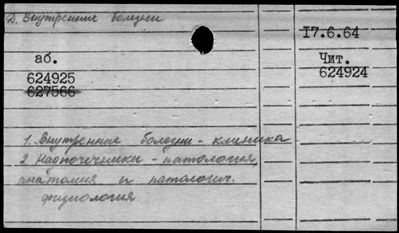 Д. Внутренние болезни
17.6.64
аб.
Чит.
624925
624924
627566
1. Внутренние болезни - клиника
2. Надпочечники - патология,
анатомия и патологич.
физиология